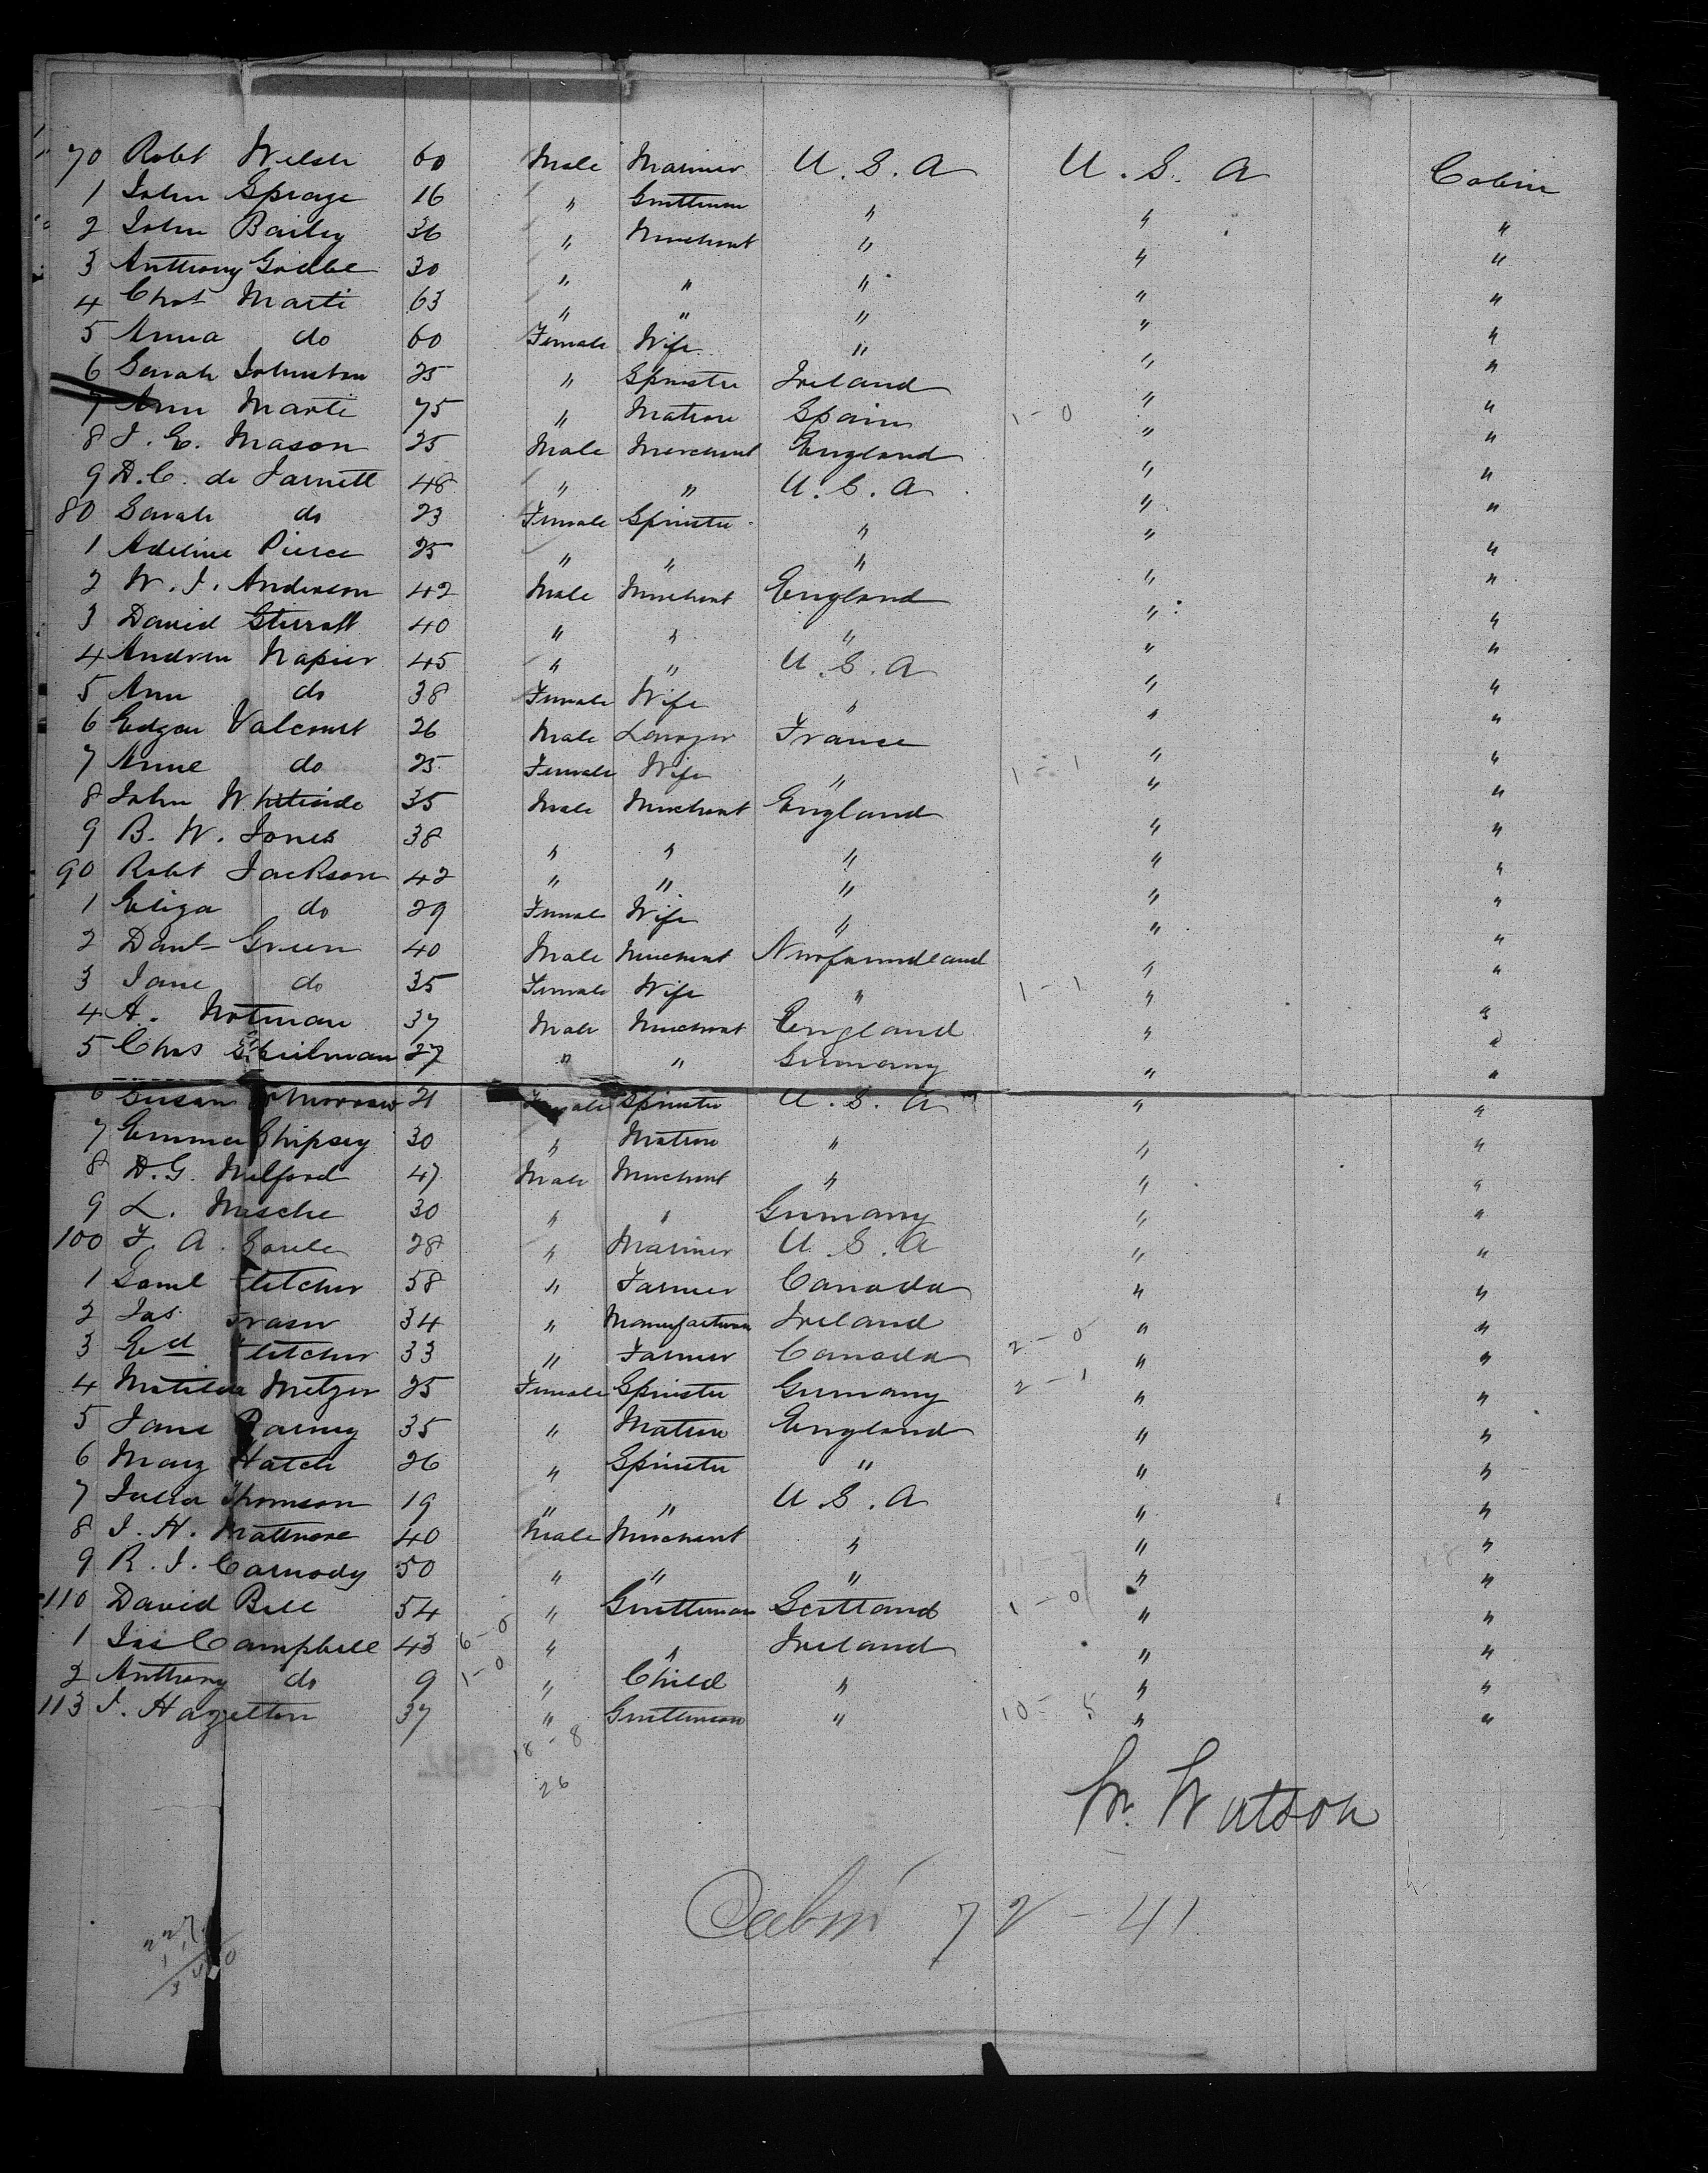 70 Robt Welsh 60 Male Mariner U.S.A U.S.A Cabin
1 John Sprage 16 " Gentleman " " "
2 John Bailey 36 " Merchant " " "
3 Anthony 30 " " " " "
4 Chas Marti 63 " " " " "
5 Anna do 60 Female Wife " " "
6 Sarah Johnston 25 " Spinster Ireland " "
7 Ann Marti 75 " Matron Spain 1-0 " "
8 J. E. Mason 25 Male Merchant England " "
9 D. C. de Jarnett 48 " " U.S.A " "
80 Sarah do 23 Female Spinster " " "
1 Adeline Pierce 25 " " " " "
2 W. J. Anderson 42 Male Merchant England " "
3 David Stirratt 40 " " " " "
4 Andrew Napier 45 " " U.S.A " "
5 Ann do 38 Female Wife " " "
6 Edgar Valcourt 26 Male Lawyer France " "
7 Anne do 25 Female Wife " 1-1 " "
8 John Whiteside 35 Male Merchant England " "
9 B. W. Jones 38 " " " " "
90 Robt Jackson 42 " " " " "
1 Eliza do 29 Female Wife " " "
2 Danl Green 40 Male Merchant Newfoundland " "
3 Jane do 35 Female Wife " 1-1 " "
4 A. Notman 37 Male Merchant England " "
5 Chas 27 " " Germany " "
6 Susan Morrow 21 Female Spinster U.S.A " "
7 Emma Shipsey 30 " Matron " " "
8 D. G. Milford 47 Male Merchant " " "
9 L. Mesche 30 " " Germany " "
100 F. A. 28 " Mariner U.S.A " "
1 Saml Fletcher 58 " Farmer Canada " "
2 Jas Fraser 34 " Manufacturer Ireland " "
3 Ed Fletcher 33 " Farmer Canada 2-0 " "
4 Matilda Metzer 25 Female Spinster Germany 2-1 " "
5 Jane 35 " Matron England " "
6 Mary Hatch 26 " Spinster " " "
7 Julia Thomson 19 " " U.S.A " "
8 J. H. Mattmore 40 Male Merchant " " "
9 R. J. Carmody 50 " " " " "
110 David Bell 54 " Gentleman Scotland 1-0 " "
1 Jas Campbell 43 6-0 " " Ireland " "
2 Anthony do 9 1-0 " Child " " "
113 J. Hazelton 37 " Gentleman " 10-5 " "
18-8
26
W. Watson
Cabin 72-41